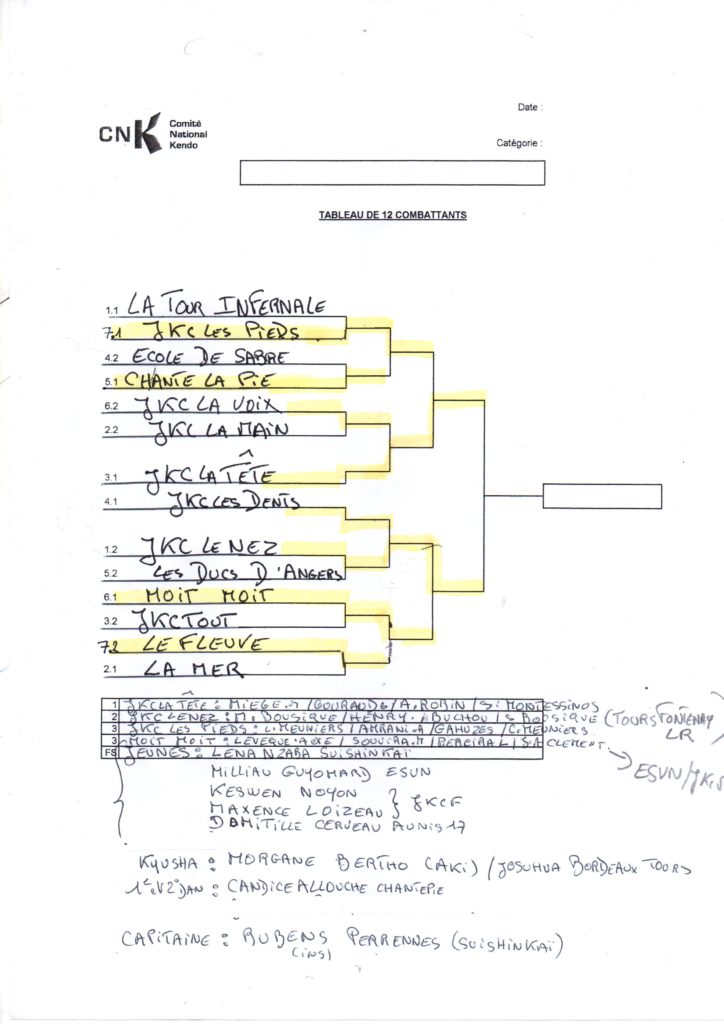 Date :
CNK Comité
National
Kendo
Catégorie :
TABLEAU DE 12 COMBATTANTS
1.1 LA TOUR INFERNALE
7.1 JKC LES PIEDS
4.2 ECOLE DE SABRE
5.1 CHANTE LA PIE
6.2 JKC LA VOIX
2.2 JKC LA MAIN
3.1 JKC LA TÊTE
4.1 JKC LES DENTS
1.2 JKC LE NEZ
5.2 LES DUCS D'ANGERS
6.1 MOIT MOIT
3.2 JKC TOUT
7.2 LE FLEUVE
2.1 LA MER
1 JKC LA TÊTE : MIEGE.M / GOURAUD G / A. ROBIN / S. MONTESSINOS
2 JKC LE NEZ : M. BOUSIQUE / HENRY. / BUCHOU / S BOUSIQUE (TOURS FONTENAY
LR
3 JKC LES PIEDS : L. MEUNIERS / AMRANI.A / GAHUZES / C. MEUNIERS
3 MOIT MOIT : LEVEQUE A / SOUVIRA.M / PEREIRA L / S.A CLEMENT.
ESVN/JKCF
FS JEUNES : LENA NZABA SUISHINKAÏ
MILLIAU GUYOMARD ESUN
KESWEN NOYON
MAXENCE LOIZEAU } JKCF
DOMITILLE CERVEAU AUNIS 17
KYUSHA : MORGANE BERTHO (AKI) / JOSUHUA BORDEAUX TOURS
1er 2° DAN : CANDICE ALLOUCHE CHANTEPIE
CAPITAINE : RUBENS PERRENNES (SUISHINKAÏ)
(INS)